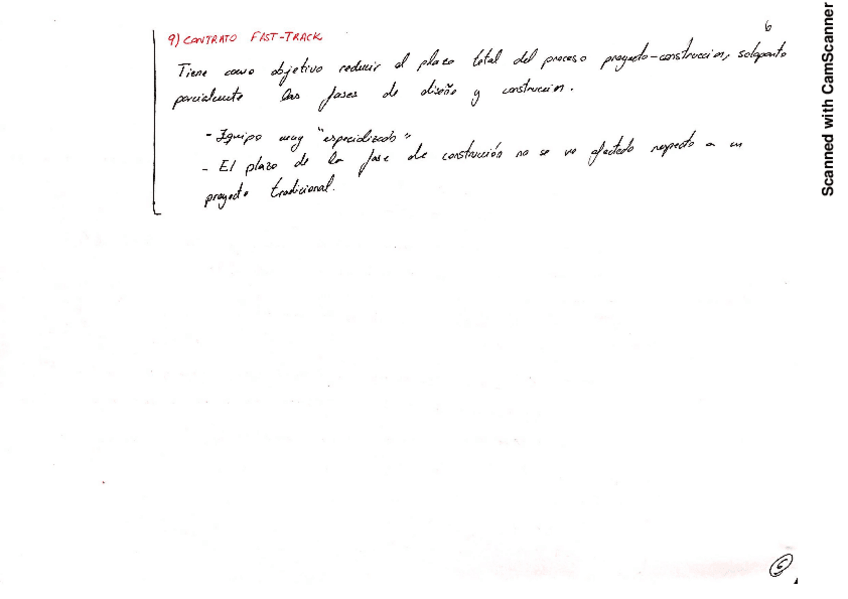 6
9) CONTRATO FAST-TRACK
Tiene como objetivo reducir el plazo total del proceso proyecto-construccion, solapando
parcialmente las fases de diseño y construccion.
- Equipo muy "especializado"
- El plazo de la fase de construcción no se ve afectado respecto a un
proyecto tradicional.
6
Scanned with CamScanner